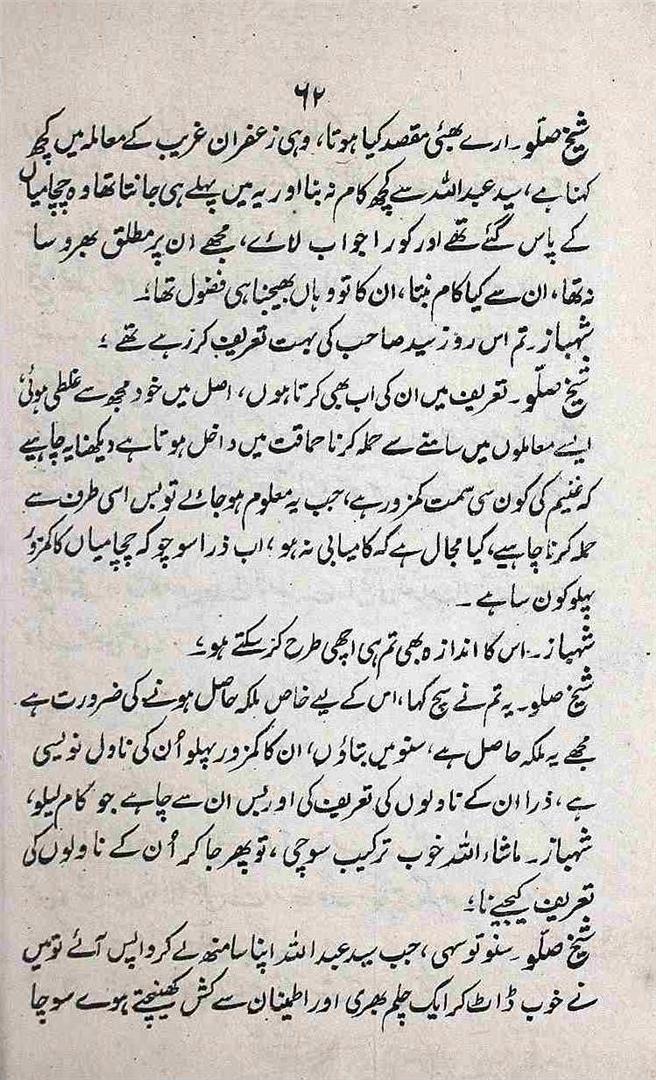 ۶۲
شیخ صلّو۔ ارے بھئی مقصد کیا ہوتا، وہی زعفران غریب کے معاملہ میں کچھ
کہنا ہے، سید عبداللہ سے کچھ کام نہ بنا اور یہ میں پہلے ہی جانتا تھا وہ چچامیاں
کے پاس گئے تھے اور کورا جواب لائے، مجھے ان پر مطلق بھروسا
نہ تھا، ان سے کیا کام بنتا، ان کا تو وہاں بھیجنا ہی فضول تھا۔
شہباز۔ تم اس روز سید صاحب کی بہت تعریف کر رہے تھے ؛
شیخ صلّو۔ تعریف میں ان کی اب بھی کرتا ہوں، اصل میں خود مجھ سے غلطی ہوئی،
ایسے معاملوں میں سامنے سے حملہ کرنا حماقت میں داخل ہوتا ہے دیکھنا یہ چاہیے
کہ غنیم کی کون سی سمت کمزور ہے، جب یہ معلوم ہو جائے تو بس اسی طرف سے
حملہ کرنا چاہیے، کیا مجال ہے کہ کامیابی نہ ہو، اب ذرا سوچو کہ چچامیاں کا کمزور
پہلو کون سا ہے۔
شہباز۔ اس کا اندازہ بھی تم ہی اچھی طرح کر سکتے ہو ؛
شیخ صلو۔ یہ تم نے سچ کہا، اس کے لیے خاص ملکہ حاصل ہونے کی ضرورت ہے
مجھے یہ ملکہ حاصل ہے، سنو میں بتاؤں، ان کا کمزور پہلو اُن کی ناول نویسی
ہے، ذرا ان کے ناولوں کی تعریف کی اور بس ان سے چاہے جو کام لیلو،
شہباز۔ ماشاء اللہ خوب ترکیب سوچی، تو پھر جا کر اُن کے ناولوں کی
تعریف کیجیے نا ؛
شیخ صلّو۔ سنو تو سہی، جب سید عبداللہ اپنا سا منھ لے کر واپس آئے تو میں
نے خوب ڈاٹ کر ایک چلم بھری اور اطمینان سے کش کھینچتے ہوے سوچا